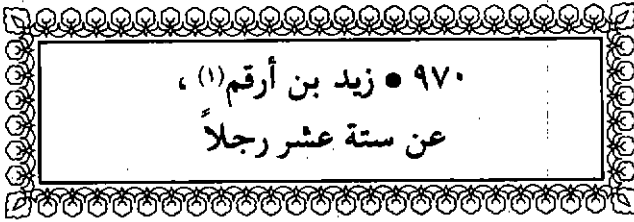 ٩٧٠ • زيد بن أرقم(١) ،
عن ستة عشر رجلاً